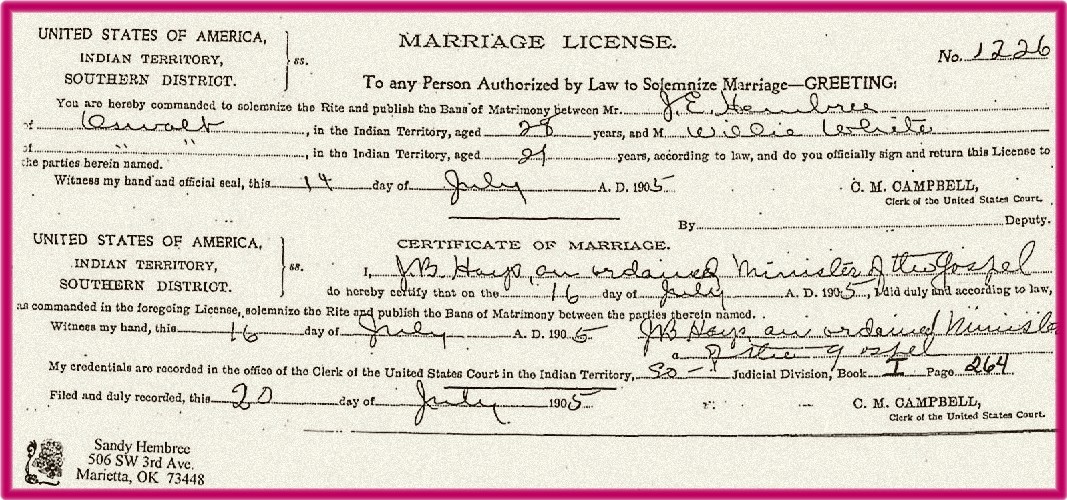 UNITED STATES OF AMERICA,
INDIAN TERRITORY,
SOUTHERN DISTRICT.
ss.
MARRIAGE LICENSE.
No. 1226
To any Person Authorized by Law to Solemnize Marriage—GREETING:
You are hereby commanded to solemnize the Rite and publish the Bans of Matrimony between Mr. J.E. Hembree
of Oswalt, in the Indian Territory, aged 28 years, and M Willie White
of " ", in the Indian Territory, aged 21 years, according to law, and do you officially sign and return this License to
the parties herein named.
Witness my hand and official seal, this 14 day of July A. D. 1905
C. M. CAMPBELL,
Clerk of the United States Court.
By Deputy.
UNITED STATES OF AMERICA,
INDIAN TERRITORY,
SOUTHERN DISTRICT.
ss.
CERTIFICATE OF MARRIAGE.
I, J.B. Hays, an ordained Minister of the Gospel
do hereby certify that on the 16 day of July A. D. 1905, I did duly and according to law,
as commanded in the foregoing License, solemnize the Rite and publish the Bans of Matrimony between the parties therein named.
Witness my hand, this 16 day of July A. D. 1905 JB Hays an ordained Minister
a of the gospel
My credentials are recorded in the office of the Clerk of the United States Court in the Indian Territory, So - Judicial Division, Book I Page 264
Filed and duly recorded, this 20 day of July 1905
C. M. CAMPBELL,
Clerk of the United States Court.
Sandy Hembree
506 SW 3rd Ave.
Marietta, OK 73448